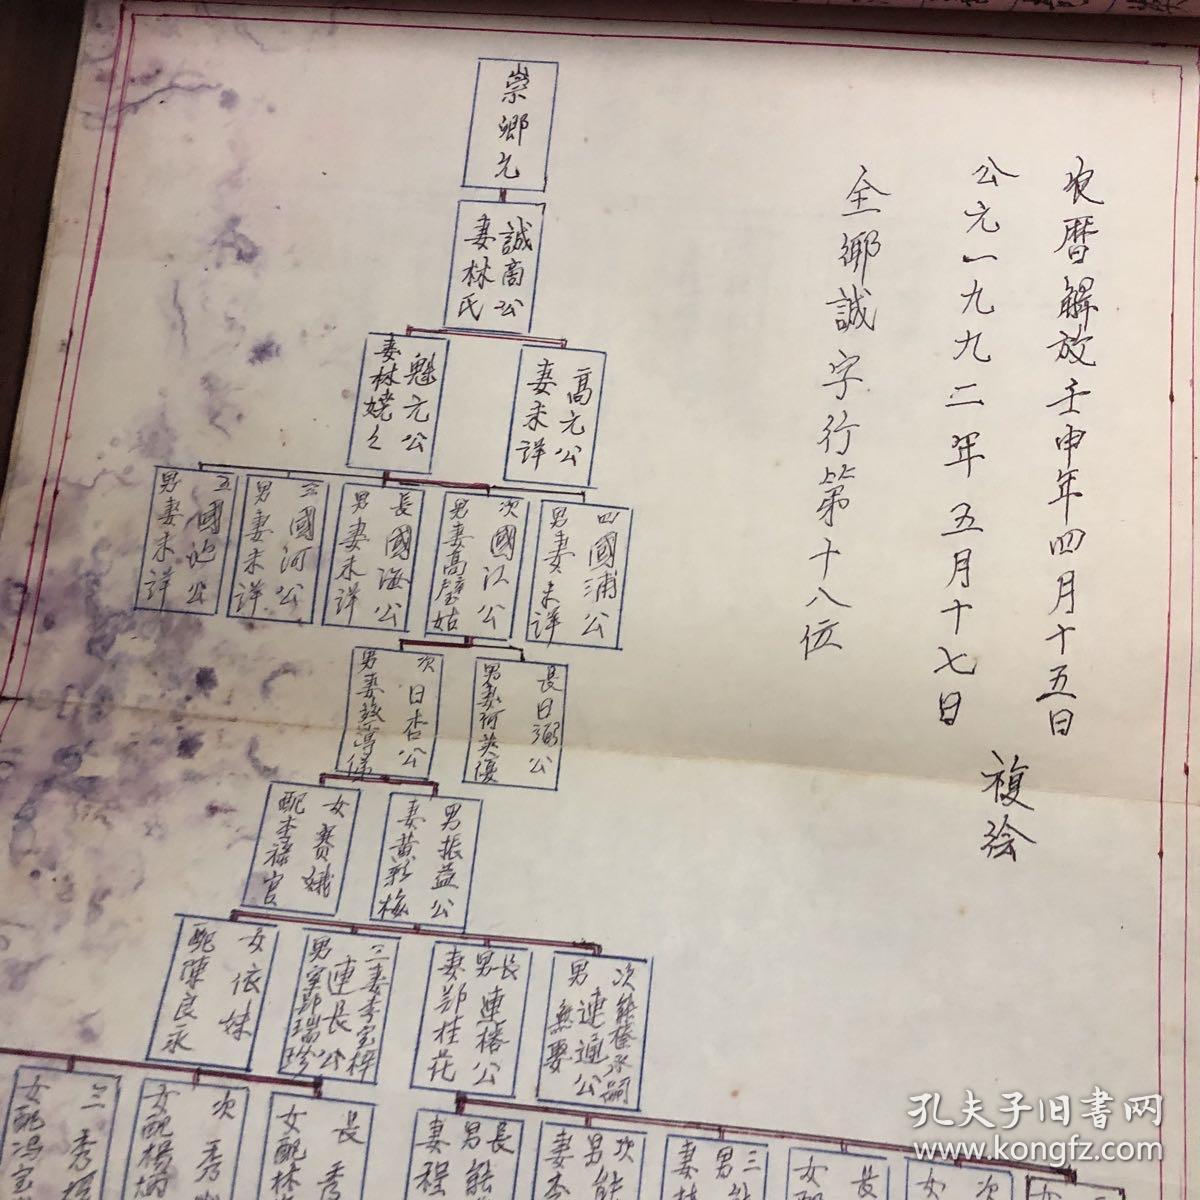 農曆解放壬申年四月十五日
公元一九九二年五月十七日
複繪
全鄉誠字行第十八位
崇鄉公
誠高公
妻林氏
高元公
妻未詳
魁元公
妻林姥
四國浦公
男妻未詳
次國江公
男妻高璧姑
長國海公
男妻未詳
三國河公
男妻未詳
五國池公
男妻未詳
長日弼公
男妻何英優
次日杏公
男妻蔡
男振益公
妻黃彩梅
女賽娥
配李祿官
次能榛承嗣
男連通公
無娶
長連榕公
男
妻鄭桂花
三妻李宝梓
連長公
男室郭瑞珍
女依妹
配陳良永
女
次
女
長
女配
三
男能
妻林
次
男能
妻李
長
男能
妻程
長秀
女配林
次秀
女配楊炳
三秀
女配冯宝
孔夫子旧書网
www.kongfz.com